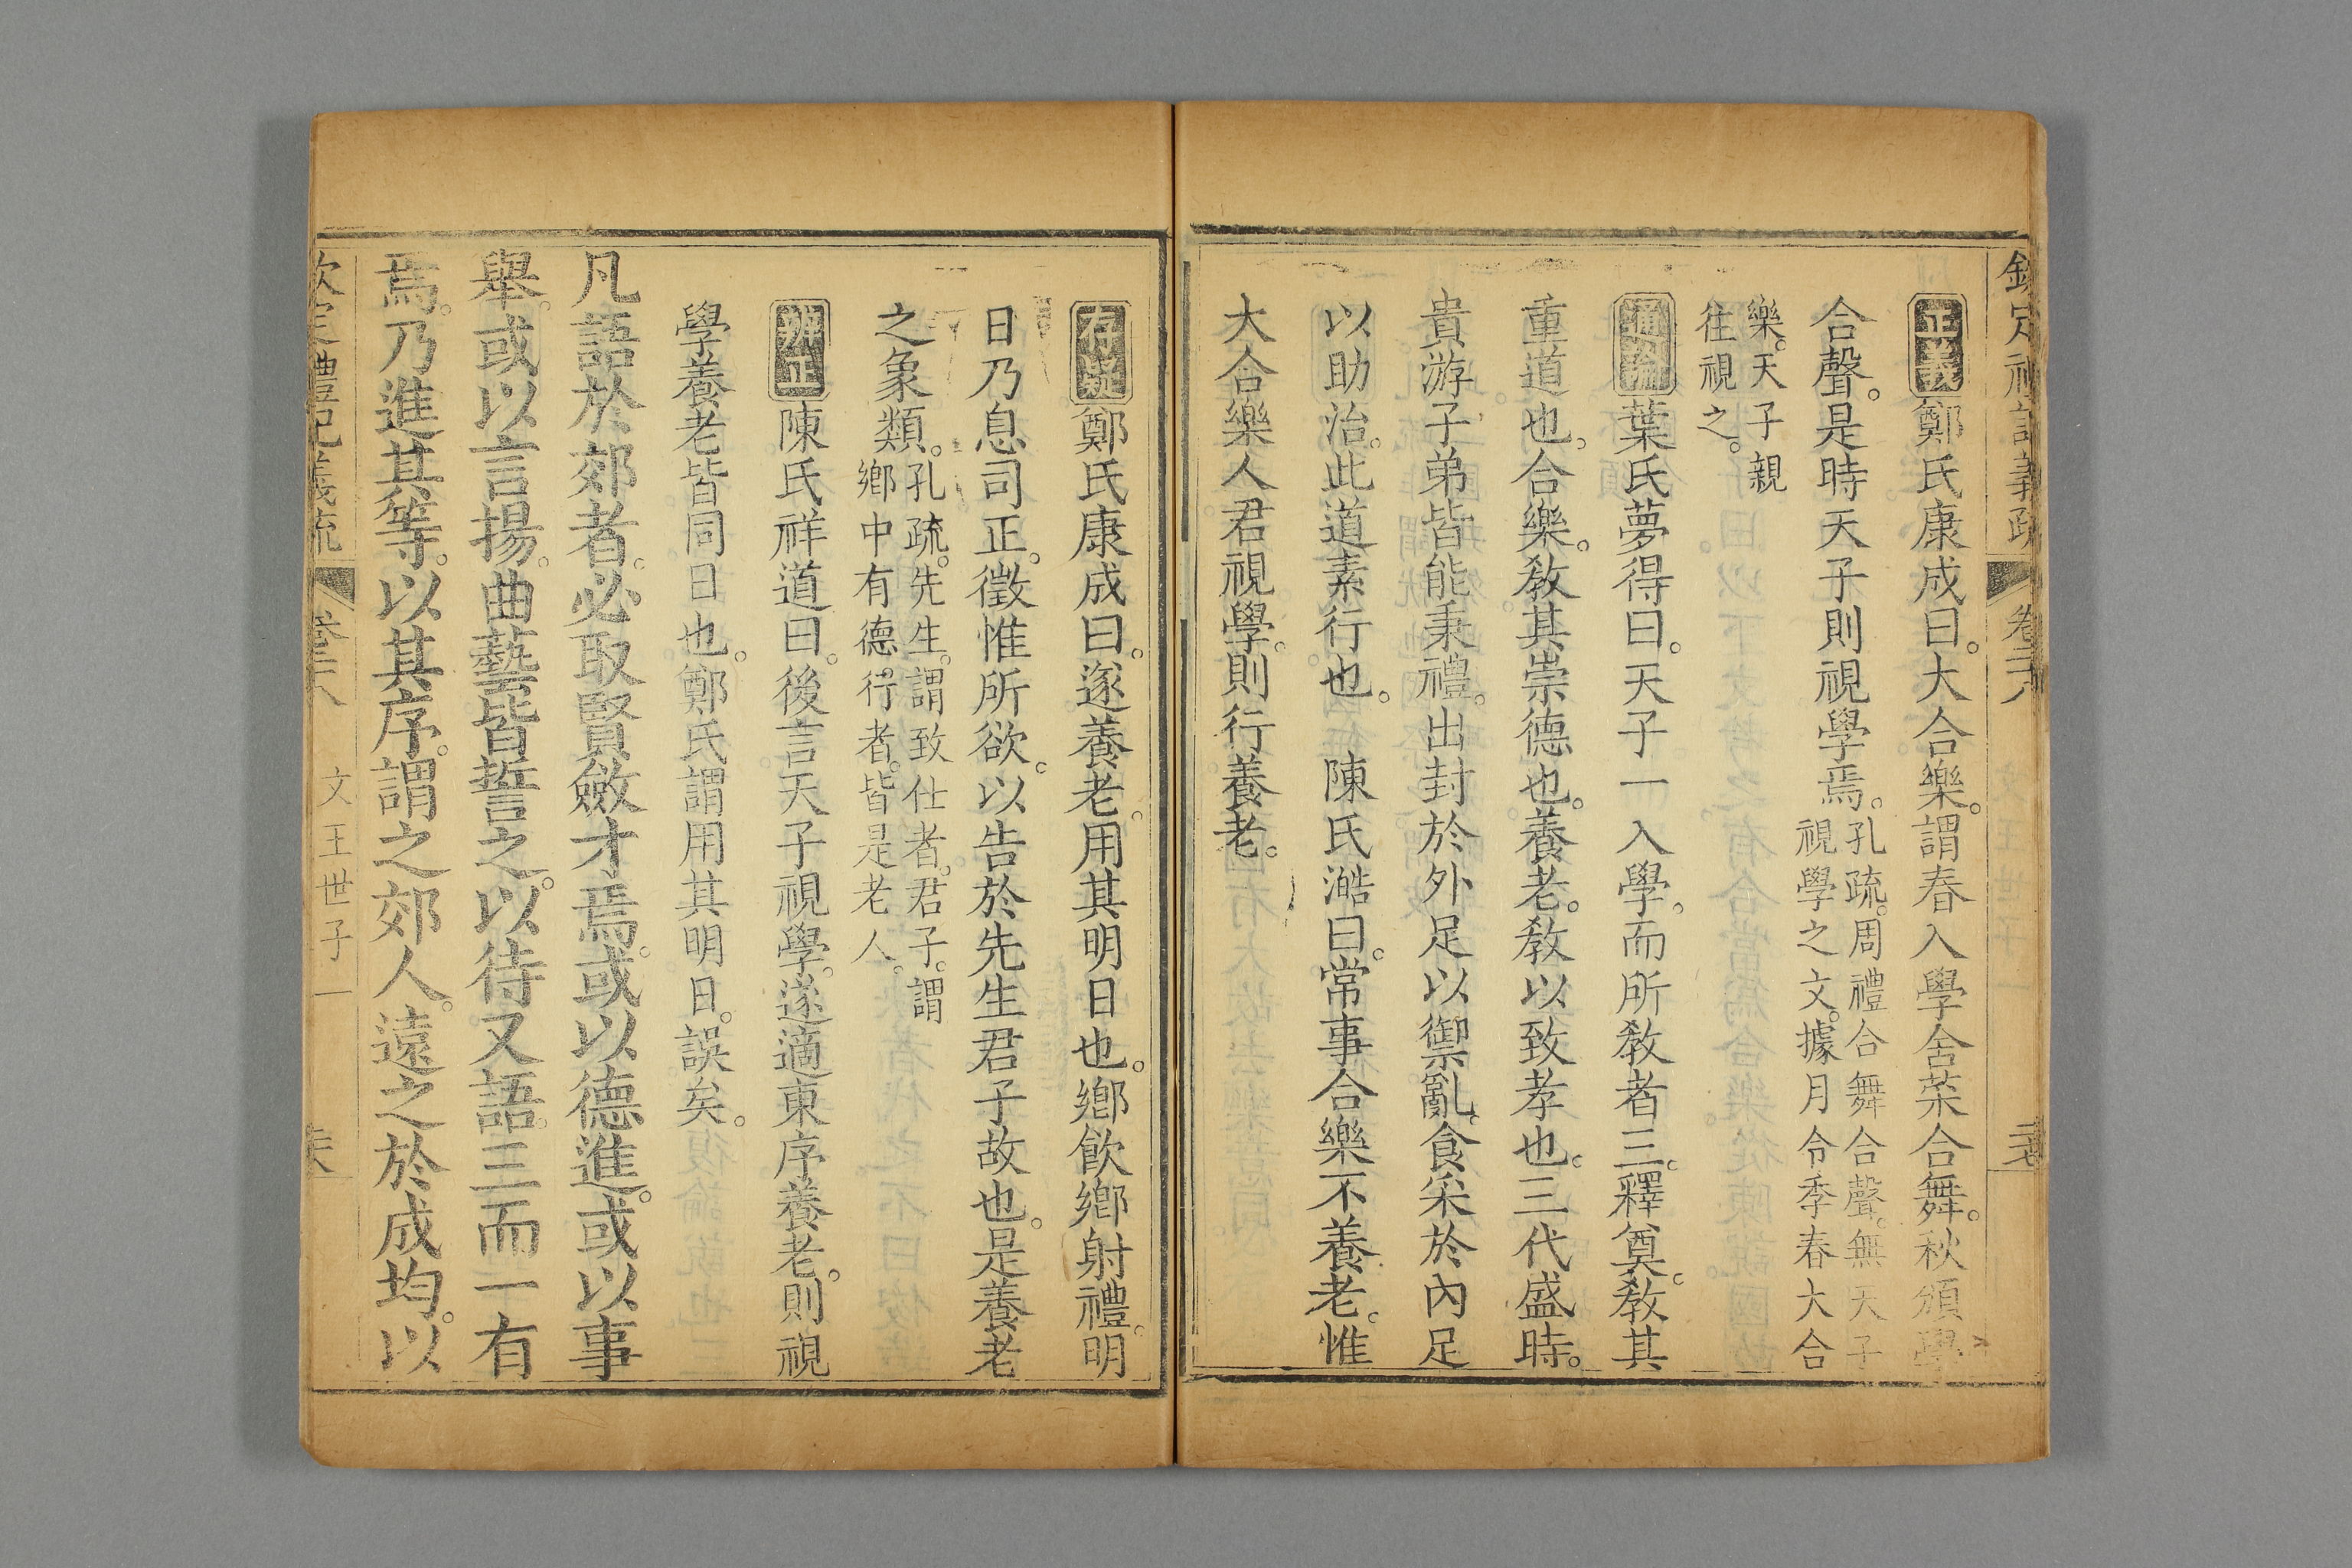 欽定禮記義疏 卷二十八
正義鄭氏康成曰。大合樂。謂春入學舍菜合舞。秋頒學
合聲。是時天子則視學焉。孔疏。周禮合舞合聲。無天子
視學之文。據月令季春大合
樂。天子親
往視之。
通論葉氏夢得曰。天子一入學。而所敎者三。釋奠。敎其
重道也。合樂。敎其崇德也。養老。敎以致孝也。三代盛時。
貴游子弟皆能秉禮。出封於外足以禦亂。食采於內足
以助治。此道素行也。 陳氏澔曰。常事合樂不養老。惟
大合樂人君視學。則行養老。
存疑鄭氏康成曰。遂養老。用其明日也。鄉飲鄉射禮。明
日乃息司正。徵惟所欲。以告於先生君子故也。是養老
之象類。孔疏。先生。謂致仕者。君子。謂
鄉中有德行者。皆是老人。
辨正陳氏祥道曰。後言天子視學。遂適東序養老。則視
學養老皆同日也。鄭氏謂用其明日。誤矣。
凡語於郊者。必取賢斂才焉。或以德進。或以事
舉。或以言揚。曲藝皆誓之。以待又語。三而一有
焉。乃進其等。以其序。謂之郊人。遠之於成均。以
欽定禮記義疏 卷二十八 文王世子一